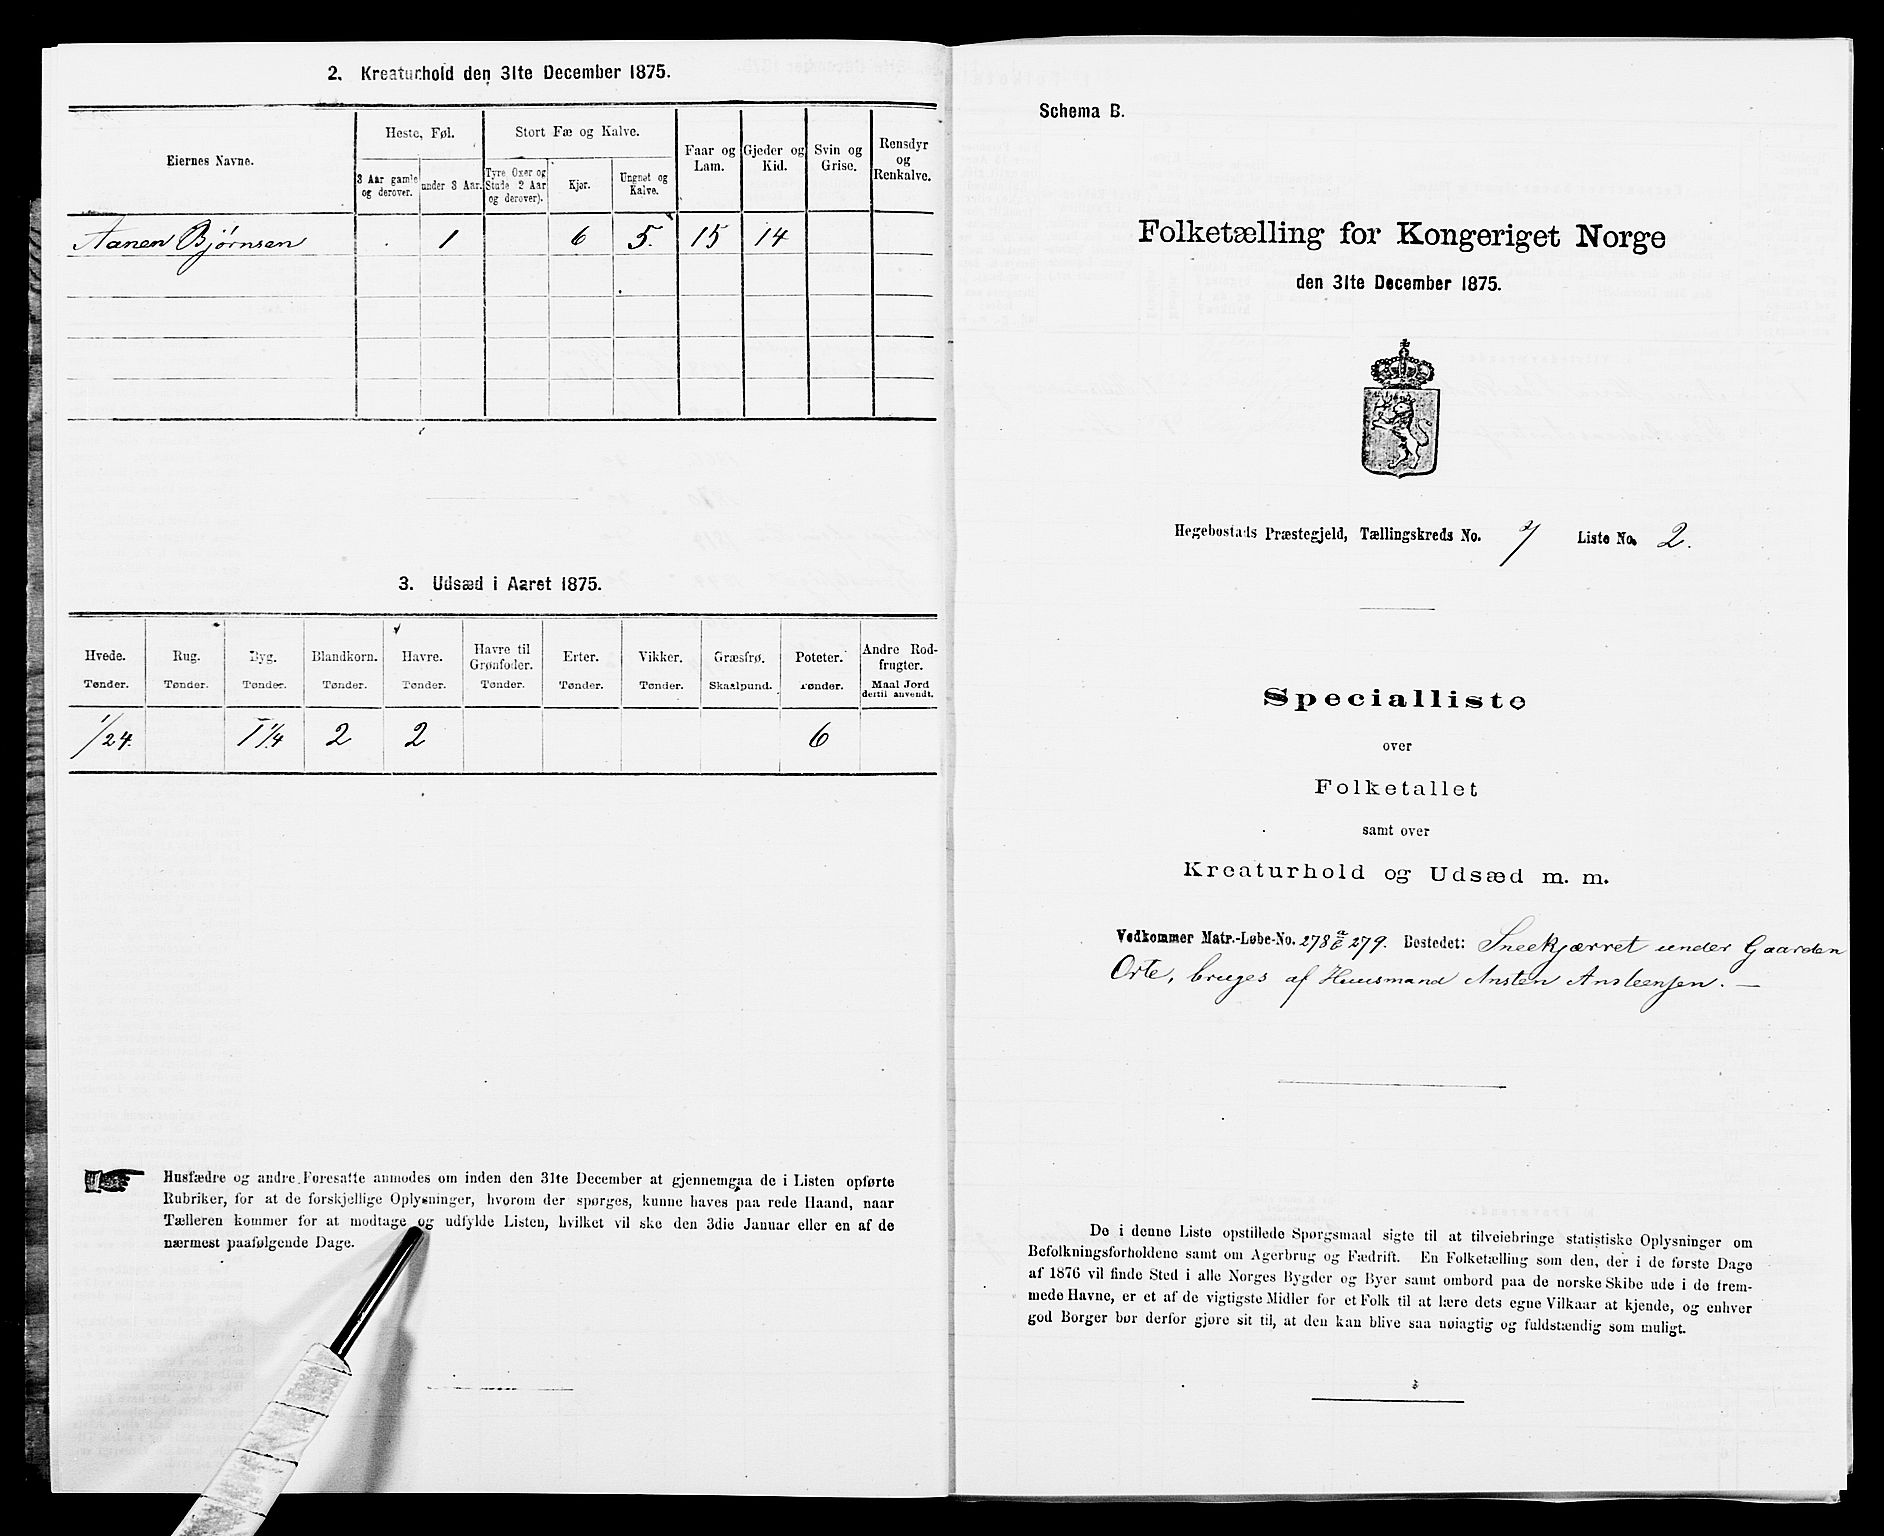 2. Kreaturhold den 31te December 1875.
Eiernes Navne.
Heste, Føl.
Stort Fæ og Kalve.
Faar og Lam.
Gjeder og Kid.
Svin og Grise.
Rensdyr og Renkalve.
3 Aar gamle og derover.
under 3 Aar.
Tyre Oxer og Stude 2 Aar og derover).
Kjør.
Ungnøt og Kalve.
Aanen Bjørnsen 1 6 5. 15 14
3. Udsæd i Aaret 1875.
Hvede. Rug. Byg. Blandkorn. Havre. Havre til Grønfoder. Erter. Vikker. Græsfrø. Poteter. Andre Rodfrugter.
Tønder. Tønder. Tønder. Tønder. Tønder. Tønder. Tønder. Tønder. Skaalpund. Tønder. Maal Jord dertil anvendt.
1/24. 1 1/4 2 2 6
Husfædre og andre Foresatte anmodes om inden den 31te December at gjennemgaa de i Listen opførte
Rubriker, for at de forskjellige Oplysninger, hvorom der spørges, kunne haves paa rede Haand, naar
Tælleren kommer for at modtage og udfylde Listen, hvilket vil ske den 3die Januar eller en af de
nærmest paafølgende Dage.
Schema B.
Folketælling for Kongeriget Norge
den 31te December 1875.
Hegebostads Præstegjeld, Tællingskreds No. 7 Liste No. 2.
Specialliste
over
Folketallet
samt over
Kreaturhold og Udsæd m. m.
Vedkommer Matr.-Løbe-No. 278 279. Bostedet: Sneekjærret under Gaarden
Orte, bruges af Huusmand Ansten Ansteensen. —
De i denne Liste opstillede Spørgsmaal sigte til at tilveiebringe statistiske Oplysninger om
Befolkningsforholdene samt om Agerbrug og Fædrift. En Folketælling som den, der i de første Dage
af 1876 vil finde Sted i alle Norges Bygder og Byer samt ombord paa de norske Skibe ude i de frem-
mede Havne, er et af de vigtigste Midler for et Folk til at lære dets egne Vilkaar at kjende, og enhver
god Borger bør derfor gjøre sit til, at den kan blive saa nøiagtig og fuldstændig som muligt.